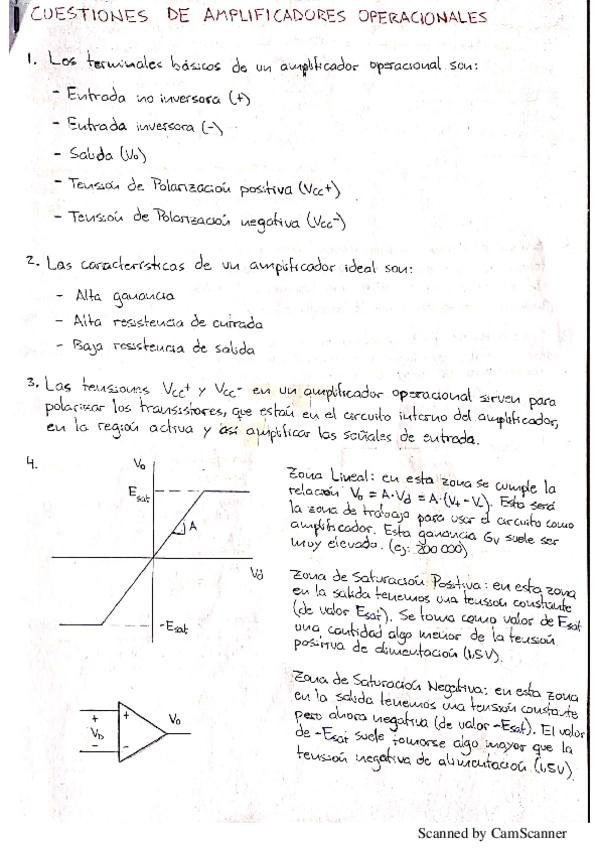 CUESTIONES DE AMPLIFICADORES OPERACIONALES
1. Los terminales básicos de un amplificador operacional son:
- Entrada no inversora (+)
- Entrada inversora (-)
- Salida (Vo)
- Tensión de Polarización positiva (Vcc+)
- Tensión de Polarización negativa (Vcc-)
2. Las características de un amplificador ideal son:
- Alta ganancia
- Alta resistencia de entrada
- Baja resistencia de salida
3. Las tensiones Vcc+ y Vcc- en un amplificador operacional sirven para
polarizar los transistores, que están en el circuito interno del amplificador,
en la región activa y así amplificar las señales de entrada.
4.
Vo
Esat
A
Vd
-Esat
Zona Lineal: en esta zona se cumple la
relación Vo = A·Vd = A·(V+ - V-). Esta será
la zona de trabajo para usar el circuito como
amplificador. Esta ganancia Gv suele ser
muy elevada. (ej: 200 000)
Zona de Saturación Positiva: en esta zona
en la salida tenemos una tensión constante
(de valor Esat). Se toma como valor de Esat
una cantidad algo menor de la tensión
positiva de alimentación (1,5V).
Zona de Saturación Negativa: en esta zona
en la salida tenemos una tensión constante
pero ahora negativa (de valor -Esat). El valor
de -Esat suele tomarse algo mayor que la
tensión negativa de alimentación (1,5V).
+
VD
-
+
-
Vo
Scanned by CamScanner